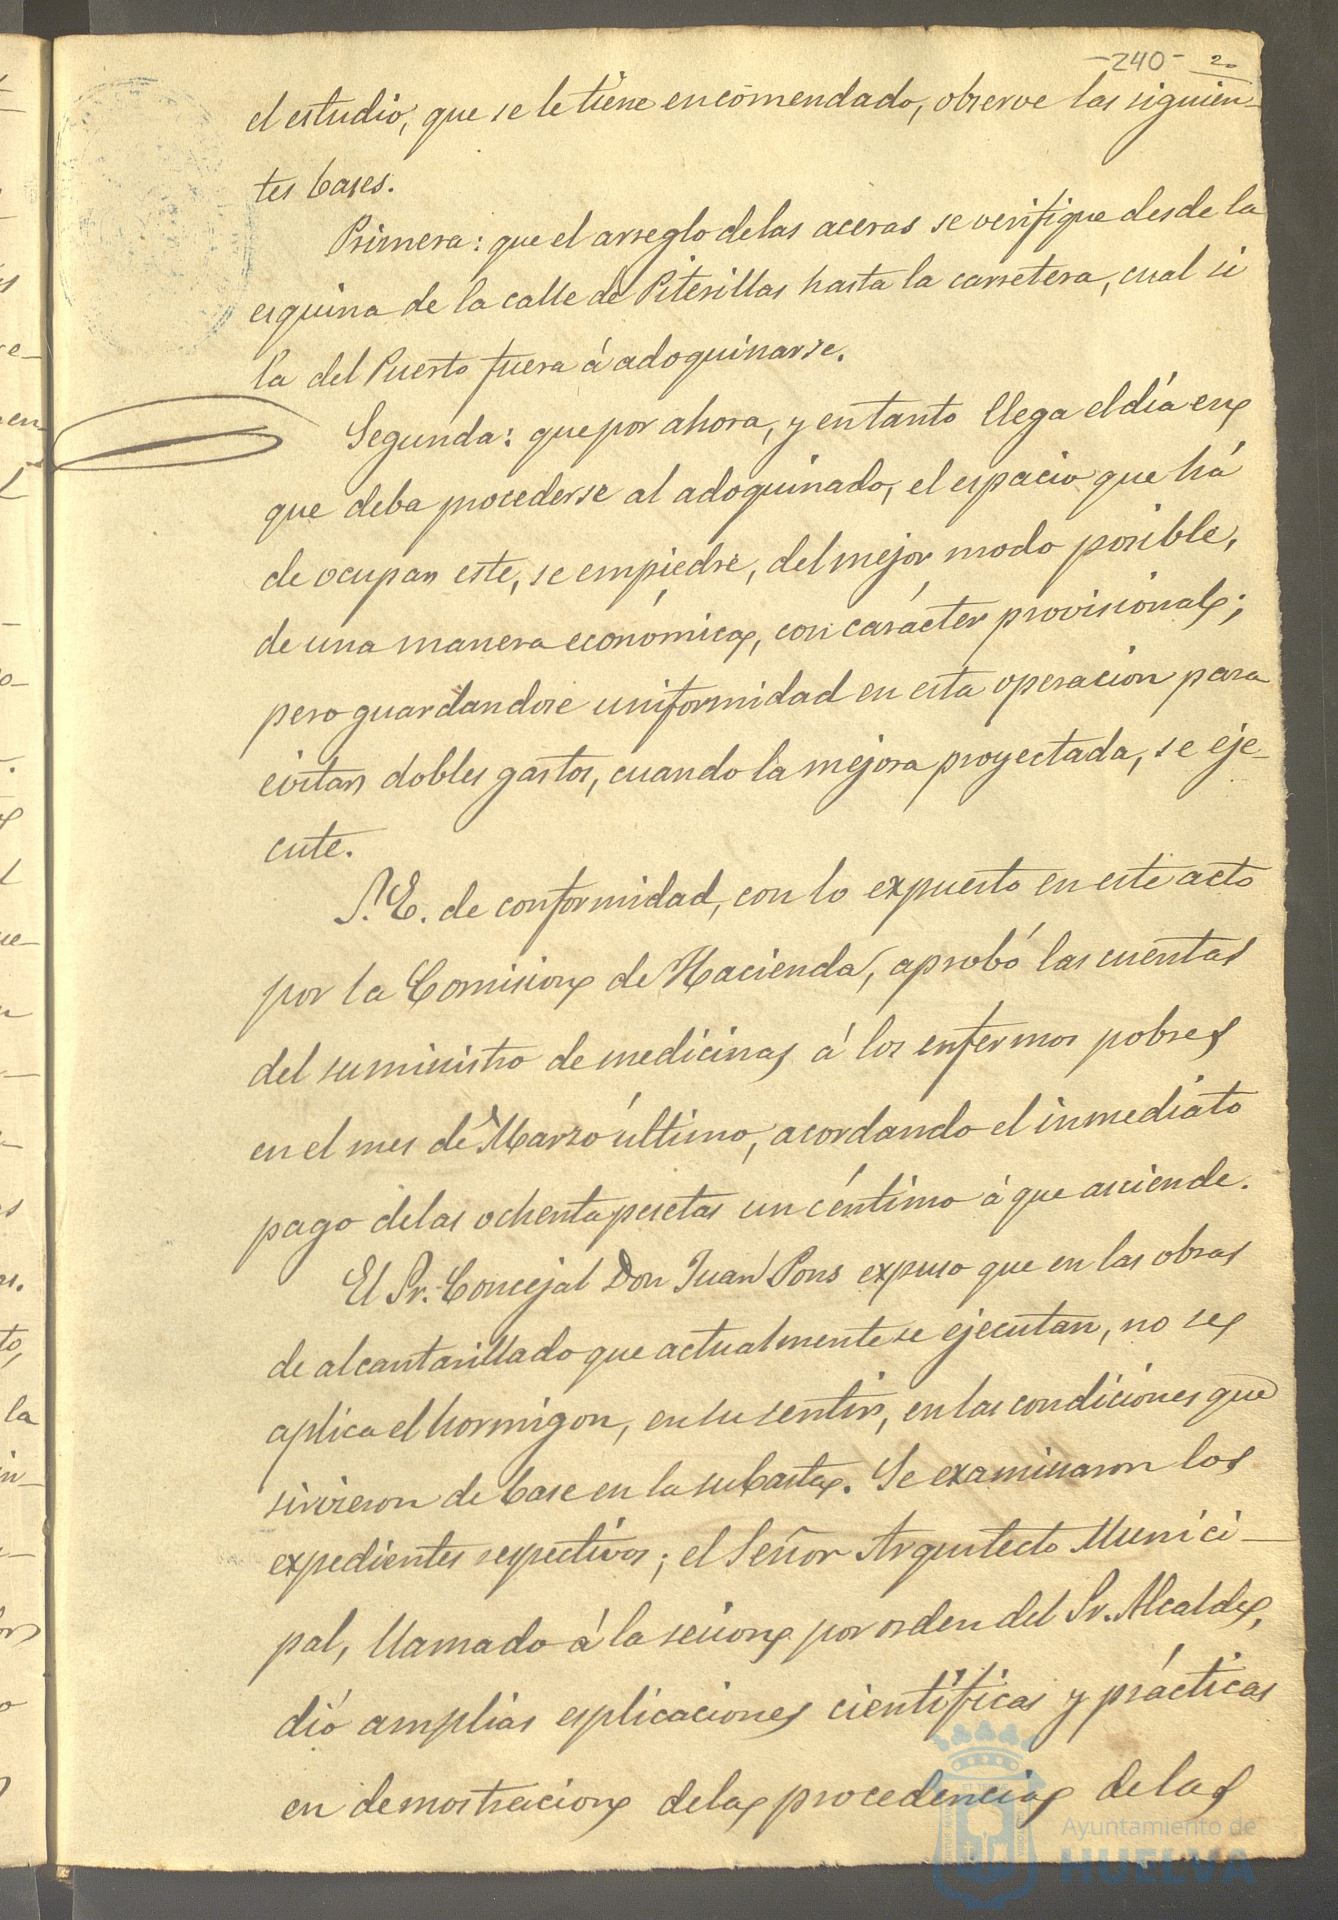 -240- 20
el estudio, que se le tiene encomendado, observe las siguien-
tes bases.
Primera: que el arreglo de las aceras se verifique desde la
esquina de la calle de Piterillas hasta la carretera, cual si
la del Puerto fuera á adoquinarse.
Segunda: que por ahora, y en tanto llega el día en
que deba procederse al adoquinado, el espacio que há
de ocupar este, se empiedre, del mejor modo posible,
de una manera económica, con carácter provisional;
pero guardandose uniformidad en esta operacion para
evitar dobles gastos, cuando la mejora proyectada, se eje-
cute.
S. E. de conformidad, con lo expuesto en este acto
por la Comision de Hacienda, aprobó las cuentas
del suministro de medicinas á los enfermos pobres
en el mes de Marzo último, acordando el inmediato
pago de las ochenta pesetas un céntimo á que asciende.
El Sr. Concejal Don Juan Pons expuso que en las obras
de alcantarillado que actualmente se ejecutan, no se
aplica el hormigon, en su sentir, en las condiciones que
sirvieron de base en la subasta. Se examinaron los
expedientes respectivos; el Señor Arquitecto Munici-
pal, llamado á la sesion por orden del Sr. Alcalde,
dió amplias esplicaciones científicas y prácticas
en demostracion de las procedencias de las
Ayuntamiento de
HUELVA